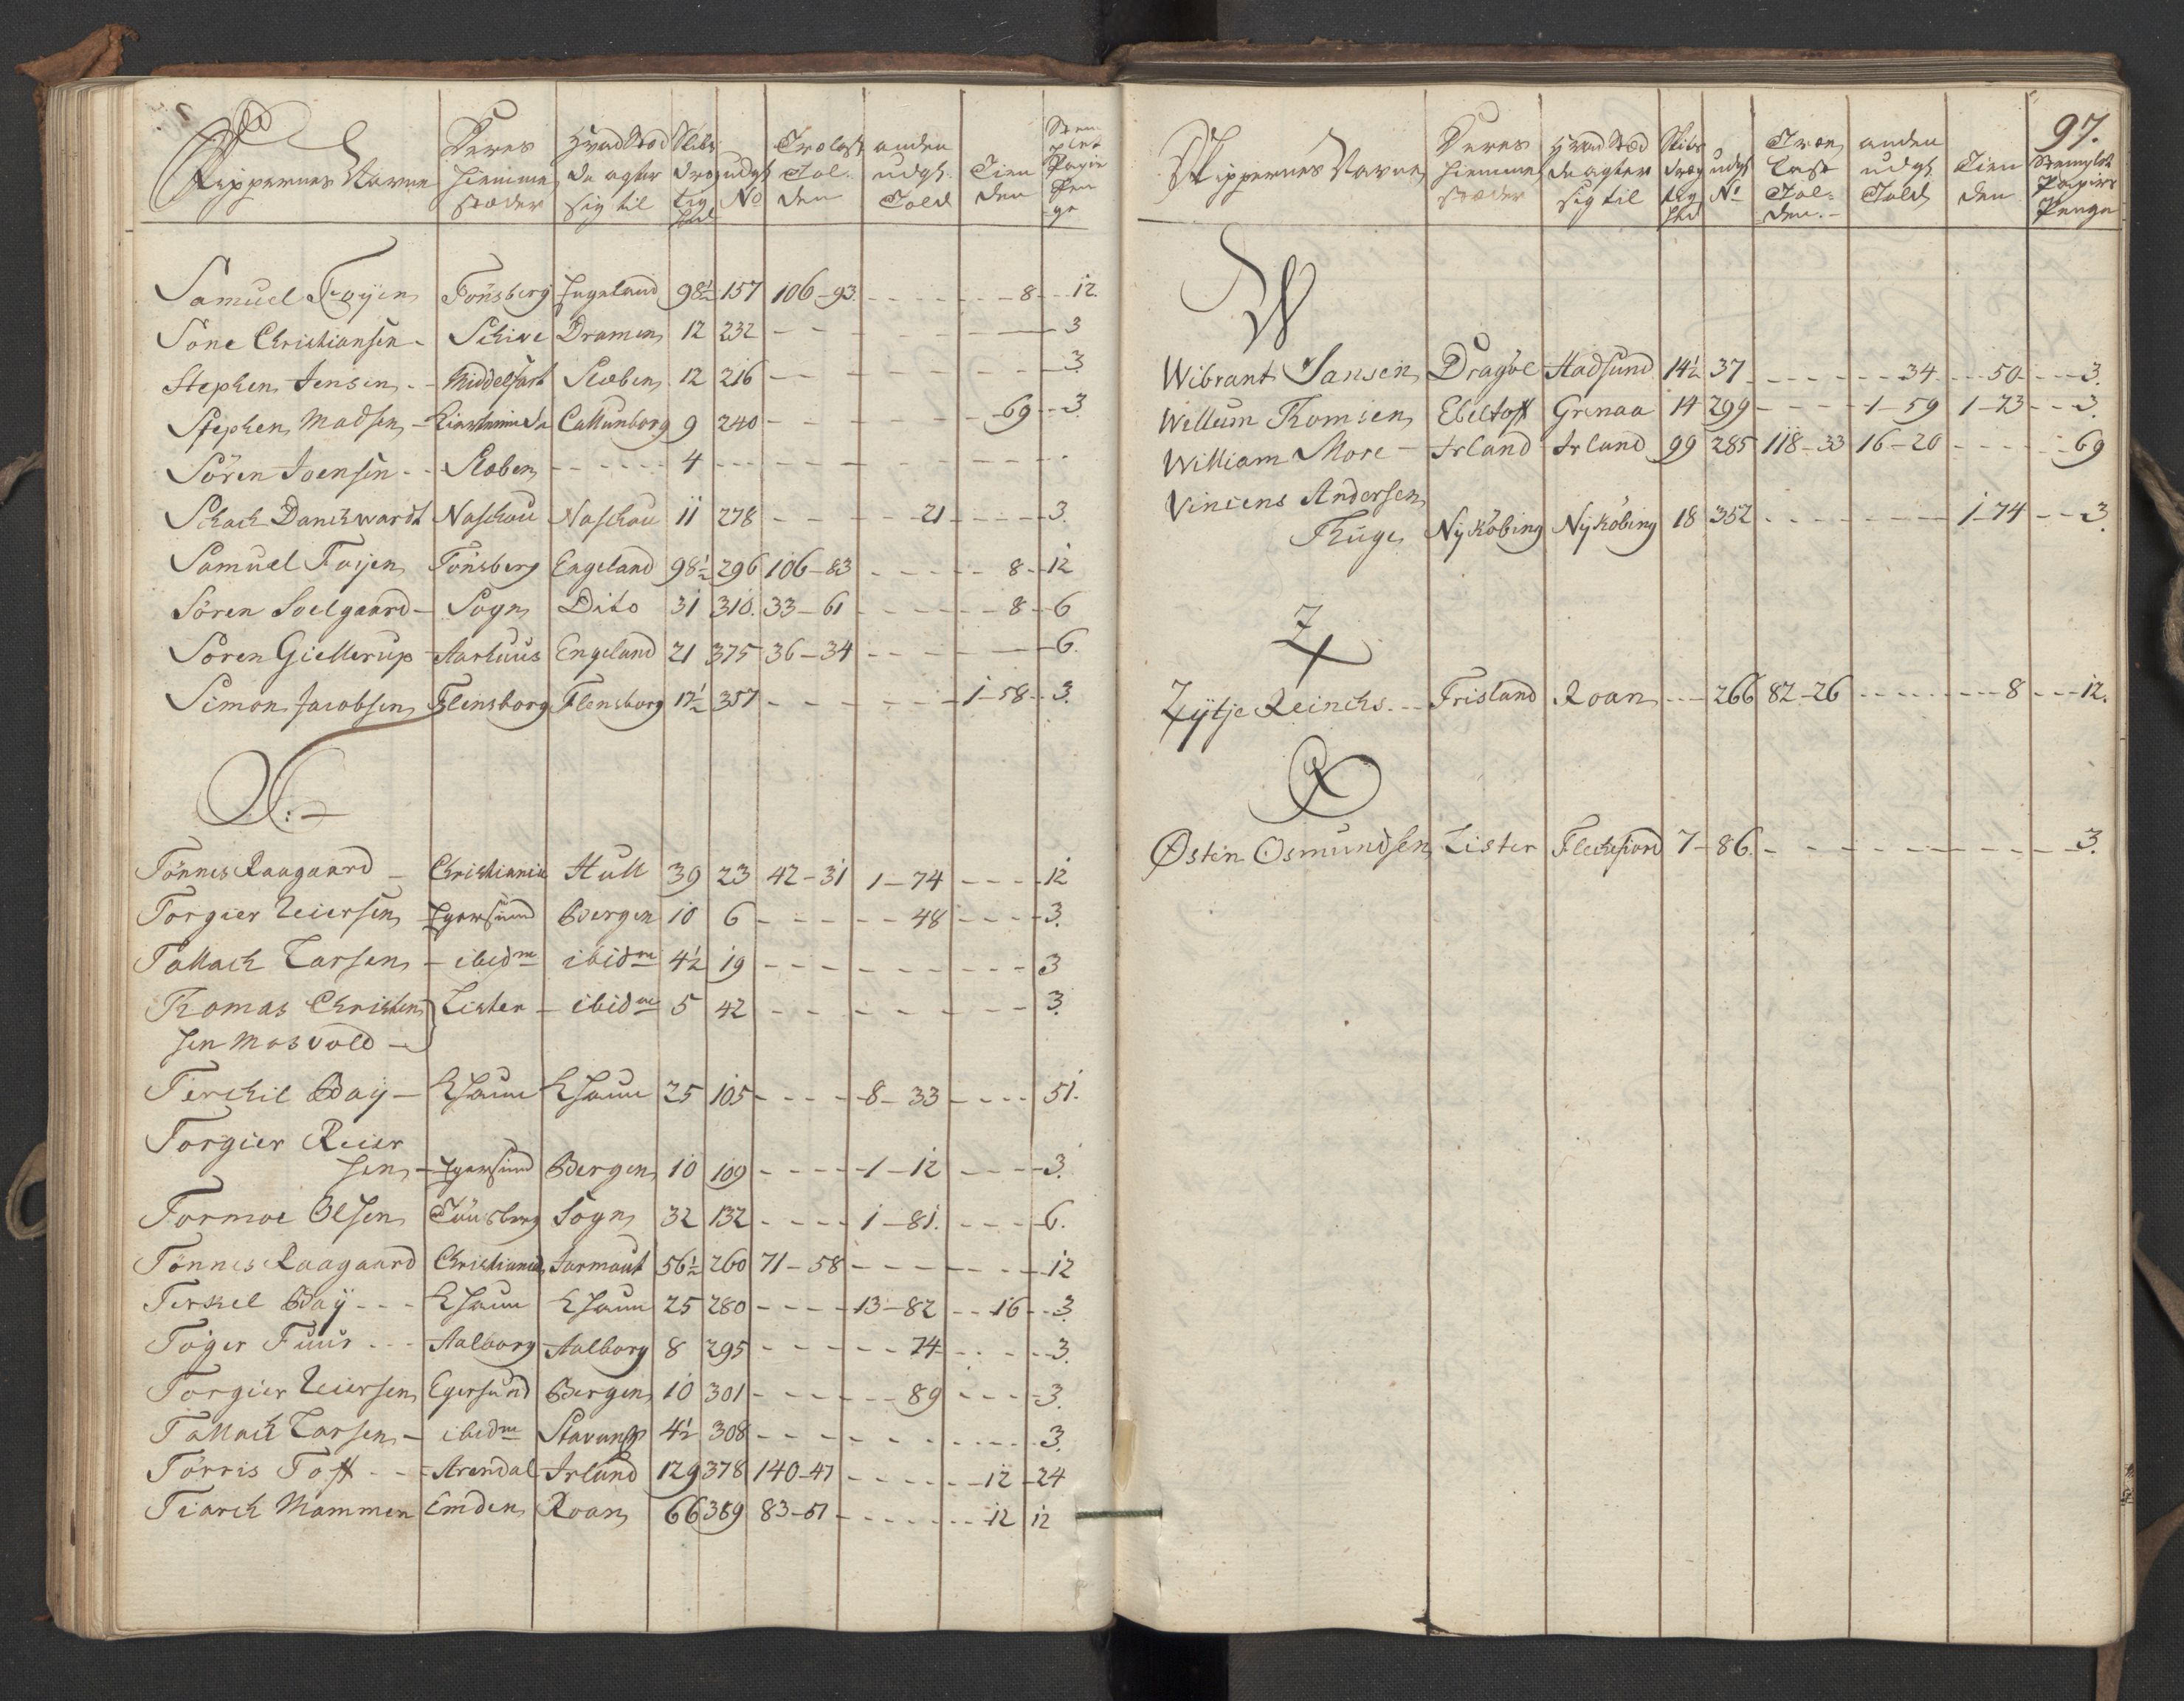 Skippernes Navne | Deres hiemme stæder | Hvad Stæd de agter sig til | Skibs drægtighed | udgl No | Trælast Tolden | anden udgl. Told | Tienden | Stemplet Papiir Penge
Samuel Foyen | Tønsberg | Engeland | 98½ | 157 | 106-93 | 8 | 12.
Sone Christiansen | Schive | Dramen | 12 | 232 | 3
Stephen Jensen | Middelfart | Sleben | 12 | 216 | 3.
Stephen Madsen | Callunborg | 9 | 240 | 69 | 3.
Sören Joensen | Sleben | 4
Schach Danckwardt | Naschou | Naschou | 11 | 278 | 21 | 3.
Samuel Foijen | Tönsberg | Engeland | 98½ | 296 | 106-83 | 8 | 12
Sören Soelgaard | Sogn | Dito | 31 | 310. | 33-61 | 8 | 6
Sören Giellerup | Aarhuus | Engeland | 21 | 375 | 36-34 | 6.
Simon Jacobsen | Flensborg | Flensborg | 17½ | 357 | 1-58 | 3.
T.
Tönnes Raagaard | Christiania | Hull | 39 | 23 | 42-31 | 1-74 | 12
Torgier Reiersen | Egersund | Bergen | 10 | 6 | 48 | 3.
Tallach Larsen | ibidm | ibidm | 4½ | 19 | 3
Thomas Christen | Lister | ibidm | 5 | 42 | 3.
sen Mosvold
Terchil Baij | Khavn | Khavn | 25 | 105 | 8-33 | 51.
Torgier Reier
sen | Egersund | Bergen | 10 | 109 | 1-12 | 3.
Tormoe Olsen | Tönsberg | Sogn | 32 | 132 | 1-81. | 6.
Tönnes Raagaard | Christiania | Jarmout | 56½ | 260 | 71-58 | 12
Terkel Baÿ | Khavn | Khavn | 25 | 280 | 13-82 | 16 | 3
Töger Fuur | Aalborg | Aalborg | 8 | 295 | 74 | 3.
Torgier Reiersen | Egersund | Bergen | 10 | 301 | 89 | 3.
Tallach Larsen | ibidm | Stavang | 4½ | 308 | 3.
Törris Toft | Arendal | Irland | 129 | 378 | 140-47 | 12 | 24
Tiarck Mammen | Emden | Roan | 66 | 389 | 83-51 | 12 | 12
97.
Skippernes Navne | Deres hiemme stæder | Hvad Stæd de agter sig til | Skibs drægtighed | udgl No | Træ Last Tolden. | anden udgl Told | Tienden | Stemplet Papiirs Penge
W
Wibrant Jansen | Dragöe | Hadsund | 14½ | 37 | 34 | 50 | 3.
Willum Thomsen | Ebeltoft | Grenaa | 14 | 299 | 1-59 | 1-23 | 3.
William More | Irland | Irland | 99 | 285 | 118-33 | 16-20 | 69
Vincens Andersen
Thuge | Nyköbing | Nyköbing | 18 | 352 | 1-74 | 3.
Z
Zÿtje Reinchs | Frisland | Roan | 266 | 82-26 | 8 | 12.
Ø
Østen Osmundsen | Lister | Fleckefiord | 7 | 86. | 3.